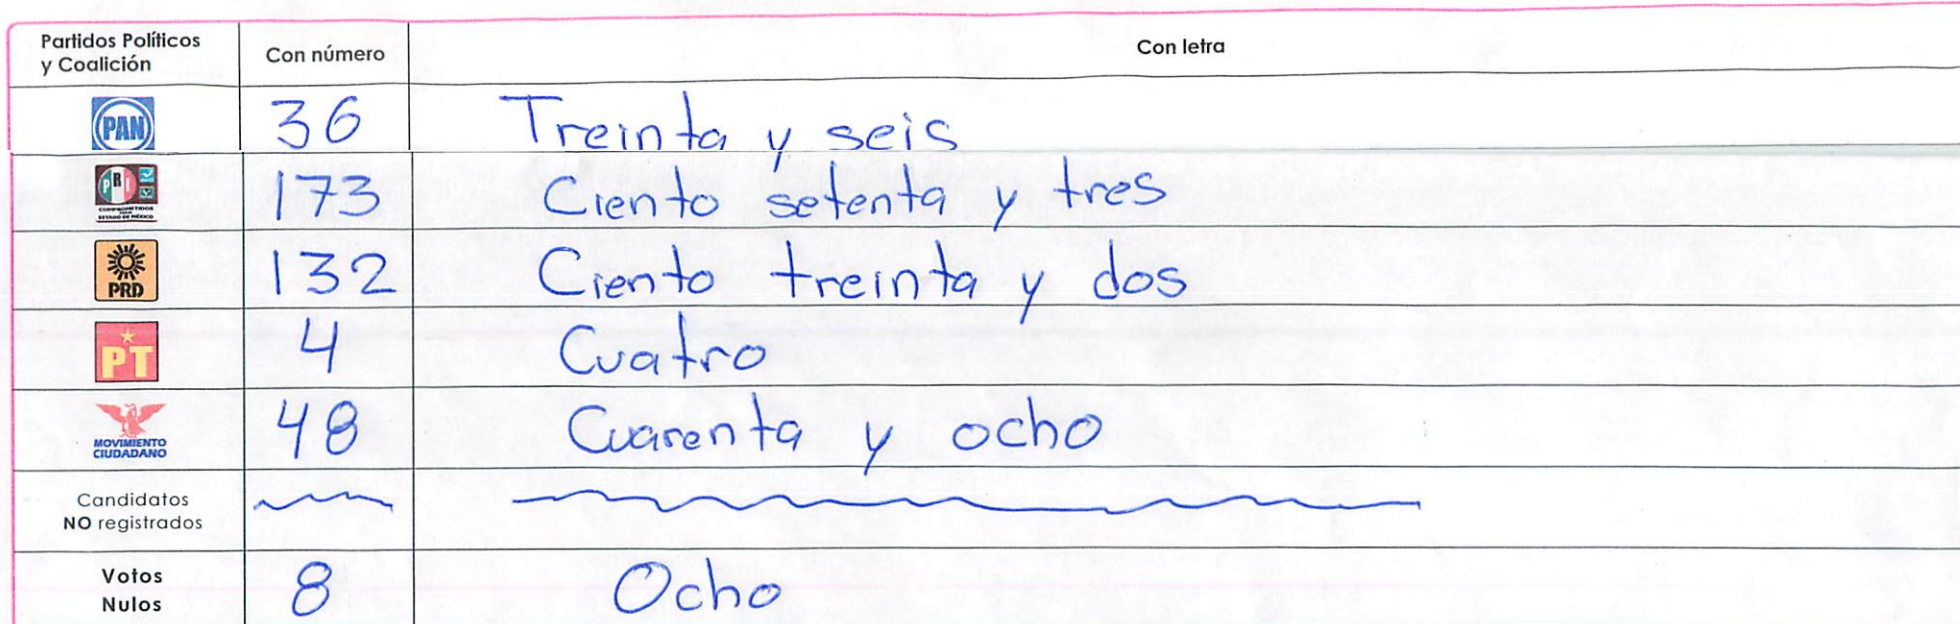 Partidos Políticos y Coalición Con número Con letra
PAN 36 Treinta y seis
PRI COMPROMETIDOS ESTADO DE MÉXICO 173 Ciento setenta y tres
PRD 132 Ciento treinta y dos
PT 4 Cuatro
MOVIMIENTO CIUDADANO 48 Cuarenta y ocho
Candidatos NO registrados
Votos Nulos 8 Ocho